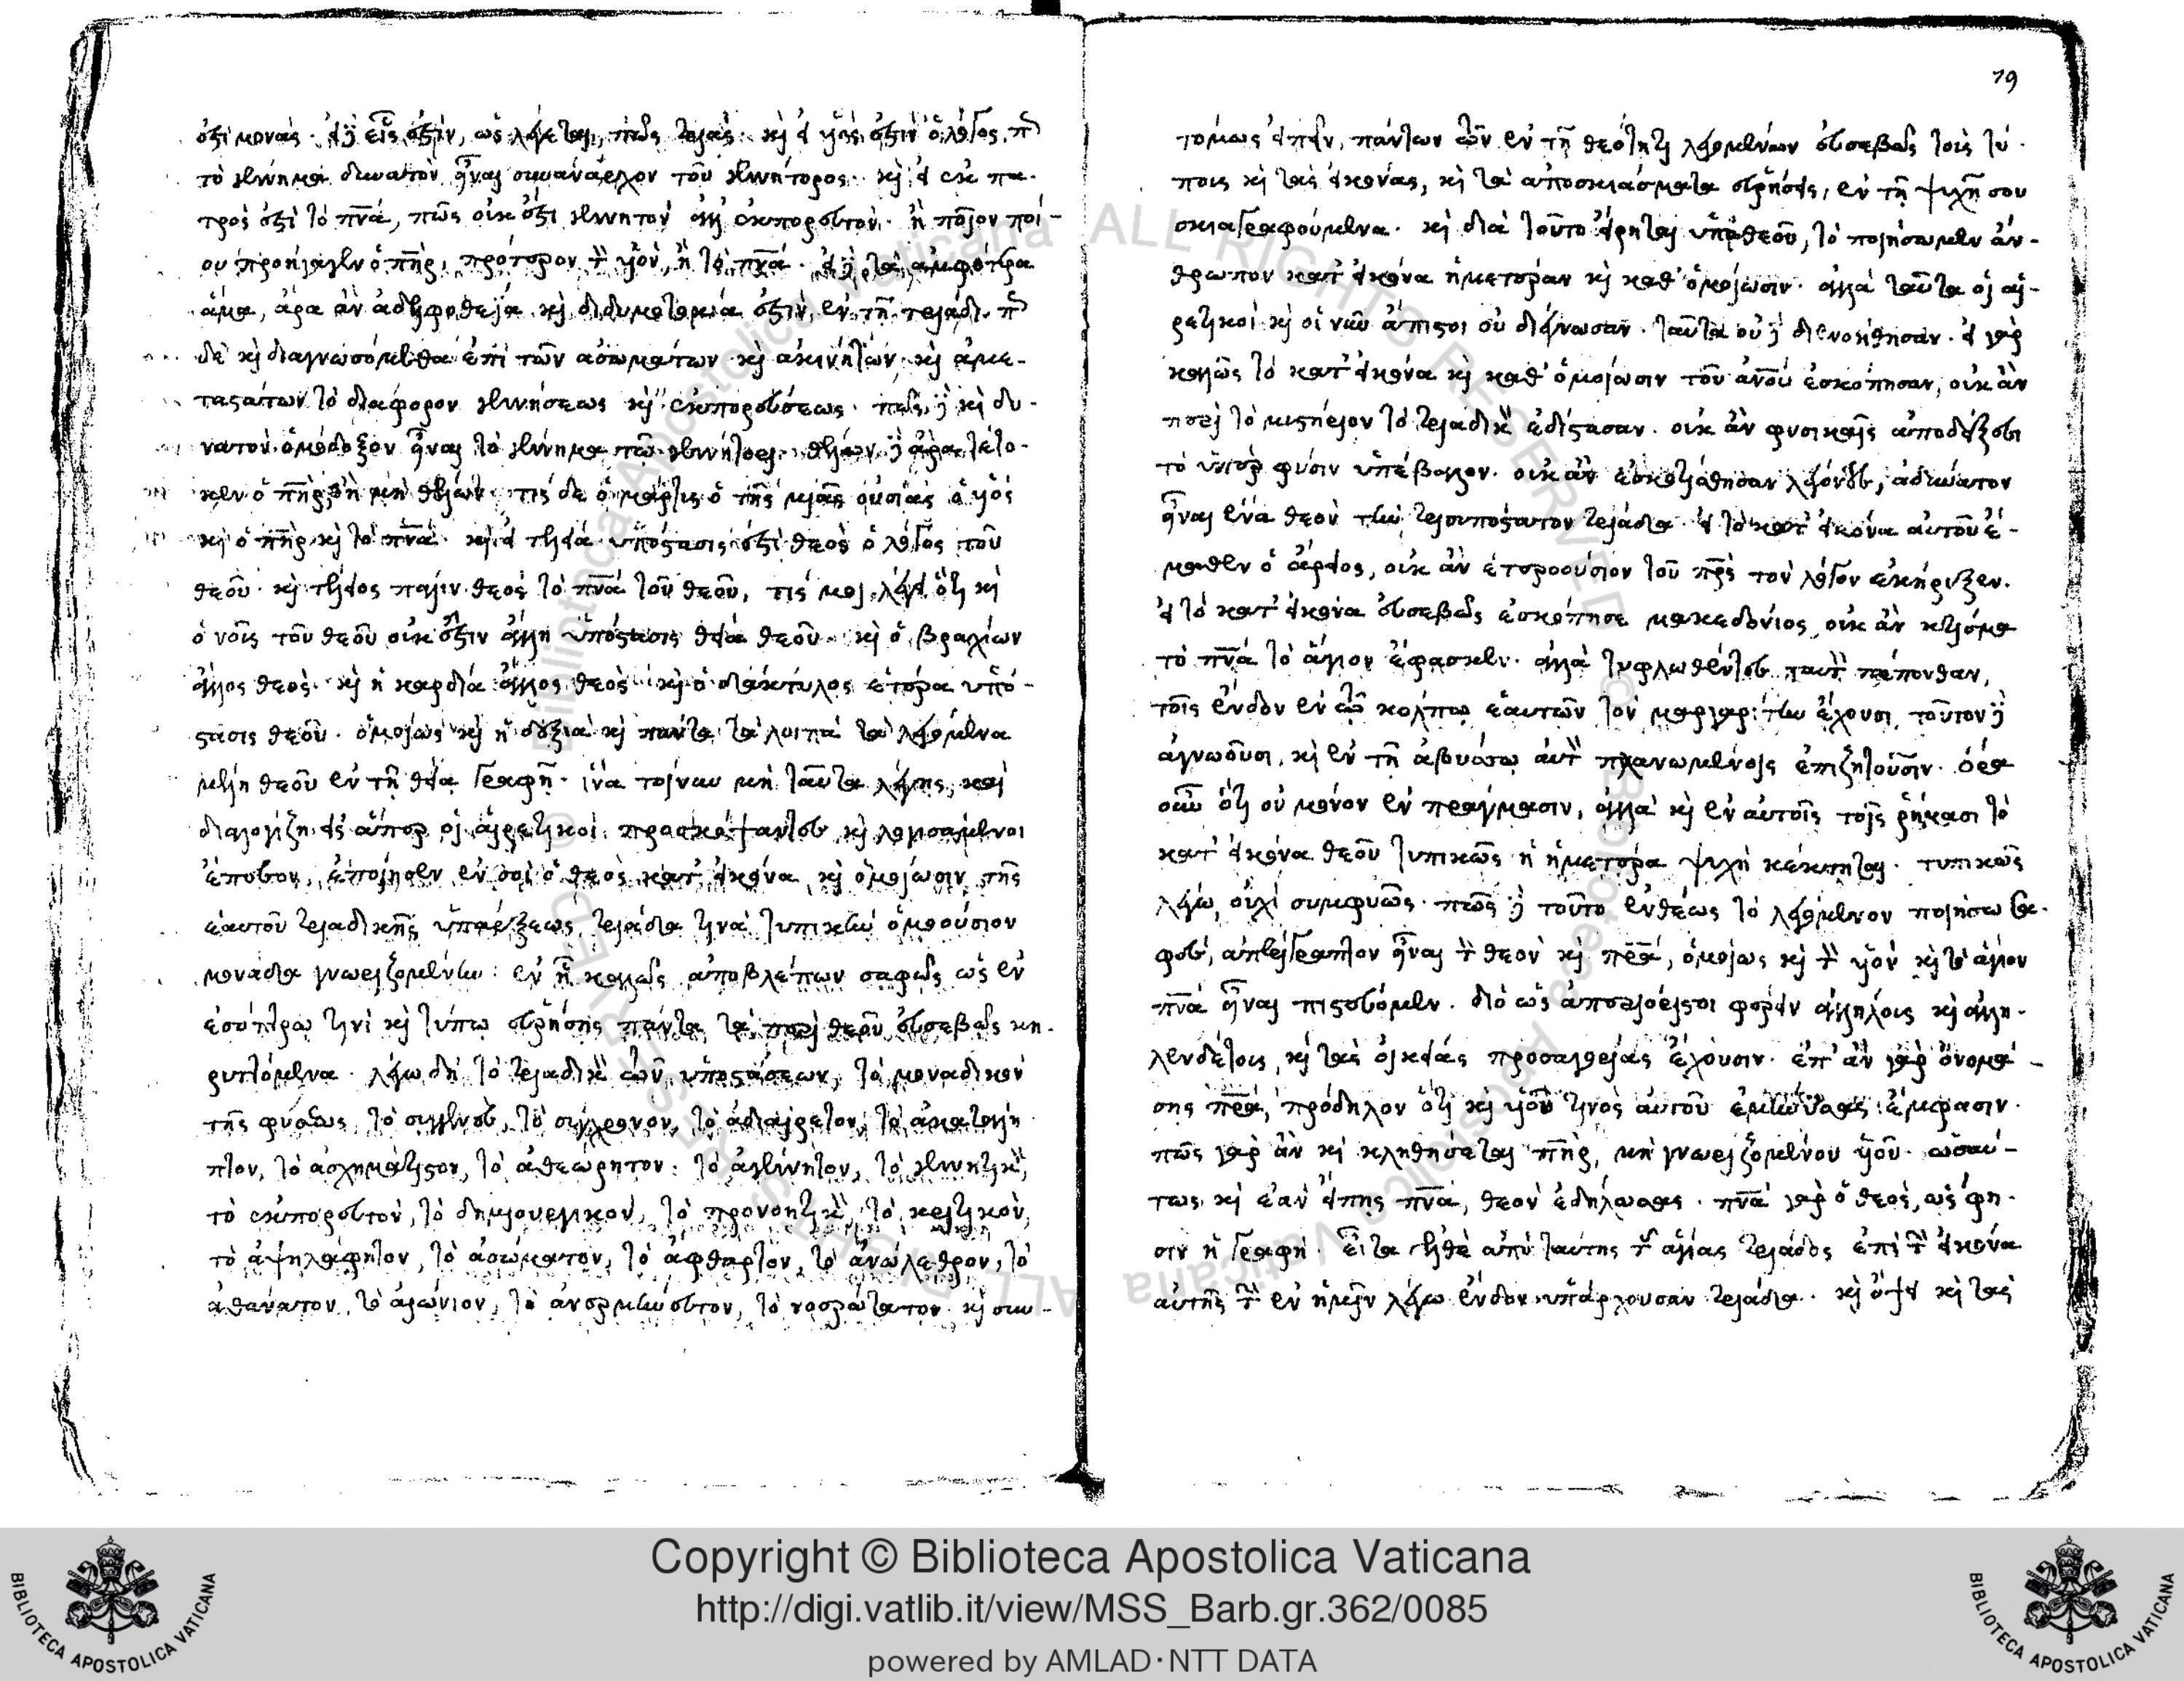 ἐστι μονάς. εἰ δὲ εἷς ἐστιν, ὡς λέγεται, πῶς τριάς. καὶ εἰ υἱός ἐστιν ὁ λόγος, πῶς
τὸ γέννημα δυνατὸν εἶναι συνάναρχον τοῦ γεννήτορος. καὶ εἰ ἐκ πα-
τρός ἐστι τὸ πνα, πῶς οὐκ ἔστι γεννητὸν ἀλλ' ἐκπορευτόν. ἢ ποῖον ποί-
ου προήγαγεν ὁ πηρ, πρότερον τὸν υἱὸν, ἢ τὸ πνα. εἰ δὲ τὰ ἀμφότερα
ἅμα, ἄρα ἂν ἀδελφοθεΐα καὶ διδυμοτοκία ἐστὶν, ἐν τῇ τριάδι. πῶς
δὲ καὶ διαγνωσόμεθα ἐπὶ τῶν ἀσωμάτων καὶ ἀκινήτων καὶ ἀμε-
ταστάτων τὸ διάφορον γεννήσεως καὶ ἐκπορεύσεως. πῶς δὲ καὶ δυ-
νατὸν ὁμόδοξον εἶναι τὸ γέννημα τῷ γεννήτορι. θέλων δὲ ἄρα τέτο-
κεν ὁ πηρ, ἢ μὴ θέλων. τίς δὲ ὁ μερίσας τῆς μιᾶς οὐσίας ὁ υἱός
καὶ ὁ πηρ καὶ τὸ πνα. καὶ εἰ τελεία ὑπόστασίς ἐστι θεὸς ὁ λόγος τοῦ
θεοῦ. καὶ τέλειος πάλιν θεὸς τὸ πνα τοῦ θεοῦ, τίς μοι λέγει ὅτι καὶ
ὁ νοῦς τοῦ θεοῦ οὐκ ἔστιν ἄλλη ὑπόστασις θεία θεοῦ. καὶ ὁ βραχίων
ἄλλος θεός. καὶ ἡ καρδία ἄλλος θεός. καὶ ὁ δάκτυλος ἑτέρα ὑπό-
στασις θεοῦ. ὁμοίως καὶ ἡ δεξιὰ καὶ πάντα τὰ λοιπὰ τὰ λεγόμενα
μέλη θεοῦ ἐν τῇ θείᾳ γραφῇ. ἵνα τοίνυν μὴ ταῦτα λέγῃς, καὶ
διαλογίζῃ εἰς ἅπερ οἱ αἱρετικοὶ προσκόψαντες καὶ λογισάμενοι
ἔπεσον, ἐποίησεν ἐν σοὶ ὁ θεὸς κατ' εἰκόνα καὶ ὁμοίωσιν τῆς
ἑαυτοῦ τριαδικῆς ὑπάρξεως, τριάδα τινὰ τυπικὴν ὁμοούσιον
μονάδα γνωριζομένην: ἐν ᾗ καλῶς ἀποβλέπων σαφῶς ὡς ἐν
ἐσόπτρῳ τινὶ καὶ τύπῳ εὑρήσῃς πάντα τὰ περὶ θεοῦ εὐσεβῶς κη-
ρυττόμενα. λέγω δὴ τὸ τριαδικὸν τῶν ὑποστάσεων, τὸ μοναδικὸν
τῆς φύσεως, τὸ συγγενὲς, τὸ σύγχρονον, τὸ ἀδιαίρετον, τὸ ἀκατάλη-
πτον, τὸ ἀσχημάτιστον, τὸ ἀθεώρητον: τὸ ἀγέννητον, τὸ γεννητικὸν,
τὸ ἐκπορευτὸν, τὸ δημιουργικὸν, τὸ προνοητικὸν, τὸ κριτικὸν,
τὸ ἀψηλάφητον, τὸ ἀσώματον, τὸ ἄφθαρτον, τὸ ἀνώλεθρον, τὸ
ἀθάνατον, τὸ αἰώνιον, τὸ ἀνερμήνευτον, τὸ νοερώτατον. καὶ συν-
19
τόμως εἰπεῖν, πάντων τῶν ἐν τῇ θεότητι λεγομένων εὐσεβῶς τοῖς τύ-
ποις καὶ τὰς εἰκόνας, καὶ τὰ ἀποσκιάσματα εὑρήσεις, ἐν τῇ ψυχῇ σου
σκιαγραφούμενα. καὶ διὰ τοῦτο εἴρηται ὑπὸ θεοῦ, τὸ ποιήσωμεν ἄν-
θρωπον κατ' εἰκόνα ἡμετέραν καὶ καθ' ὁμοίωσιν. ἀλλὰ ταῦτα οἱ αἱ-
ρετικοὶ καὶ οἱ νῦν ἄπιστοι οὐ διέγνωσαν. ταῦτα οὐ δὲ διενοήθησαν. εἰ γὰρ
καλῶς τὸ κατ' εἰκόνα καὶ καθ' ὁμοίωσιν τοῦ ἀνου ἐσκόπησαν, οὐκ ἂν
περὶ τὸ μυστήριον τὸ τριαδικὸν ἐδίστασαν. οὐκ ἂν φυσικαῖς ἀποδείξεσι
τὸ ὑπὲρ φύσιν ὑπέβαλλον. οὐκ ἂν ἐσκοτίσθησαν λέγοντες, ἀδύνατον
εἶναι ἕνα θεὸν τὴν τρισυπόστατον τριάδα. εἰ τὸ κατ' εἰκόνα αὐτοῦ ἔ-
μαθεν ὁ ἄρειος, οὐκ ἂν ἑτεροούσιον τοῦ πρς τὸν λόγον ἐκήρυξεν.
εἰ τὸ κατ' εἰκόνα εὐσεβῶς ἐσκόπησε μακεδόνιος, οὐκ ἂν κτίσμα
τὸ πνα τὸ ἅγιον ἔφασκεν. ἀλλὰ τυφλωθέντες ταῦτα πέπονθαν,
τοῖς ἔνδον ἐν τῷ κόλπῳ ἑαυτῶν τὸν μαργαρίτην ἔχουσι, τοῦτον δὲ
ἀγνωοῦσι, καὶ ἐν τῇ ἀβύσσῳ αὐτὸν πλανωμένοις ἐπιζητοῦσιν. ὅρα
οὖν ὅτι οὐ μόνον ἐν πράγμασιν, ἀλλὰ καὶ ἐν αὐτοῖς τοῖς ῥήμασι τὸ
κατ' εἰκόνα θεοῦ τυπικῶς ἡ ἡμετέρα ψυχὴ κέκτηται. τυπικῶς
λέγω, οὐχὶ συμφυῶς. πῶς δὲ τοῦτο ἐνθέως τὸ λεγόμενον ποιήσω σα-
φὲς, ἀπερίγραπτον εἶναι τὸν θεὸν καὶ πρα, ὁμοίως καὶ τὸν υἱὸν καὶ τὸ ἅγιον
πνα εἶναι πιστεύομεν. διὸ ὡς ἀπεριόριστοι φορεῖν ἀλλήλοις καὶ ἀλλη-
λενδέτοις, καὶ τὰς οἰκείας προσηγορίας ἔχουσιν. ἐπ' ἂν γὰρ ὀνομά-
σῃς πρα, πρόδηλον ὅτι καὶ υἱοῦ τινὸς αὐτοῦ ἐμήνυσας ἔμφασιν.
πῶς γὰρ ἂν καὶ κληθήσεται πηρ, μὴ γνωριζομένου υἱοῦ. ὡσαύ-
τως καὶ ἐὰν εἴπῃς πνα, θεὸν ἐδήλωσας. πνα γὰρ ὁ θεὸς, ὥς φη-
σιν ἡ γραφή. εἶτα ἐλθὲ ἀπὸ ταύτης τῆς ἁγίας τριάδος ἐπὶ τὴν εἰκόνα
αὐτῆς τὴν ἐν ἡμῖν λέγω ἔνδον ὑπάρχουσαν τριάδα. καὶ ὄψει καὶ τὰς
Copyright © Biblioteca Apostolica Vaticana
http://digi.vatlib.it/view/MSS_Barb.gr.362/0085
powered by AMLAD·NTT DATA
BIBLIOTECA APOSTOLICA VATICANA
BIBLIOTECA APOSTOLICA VATICANA